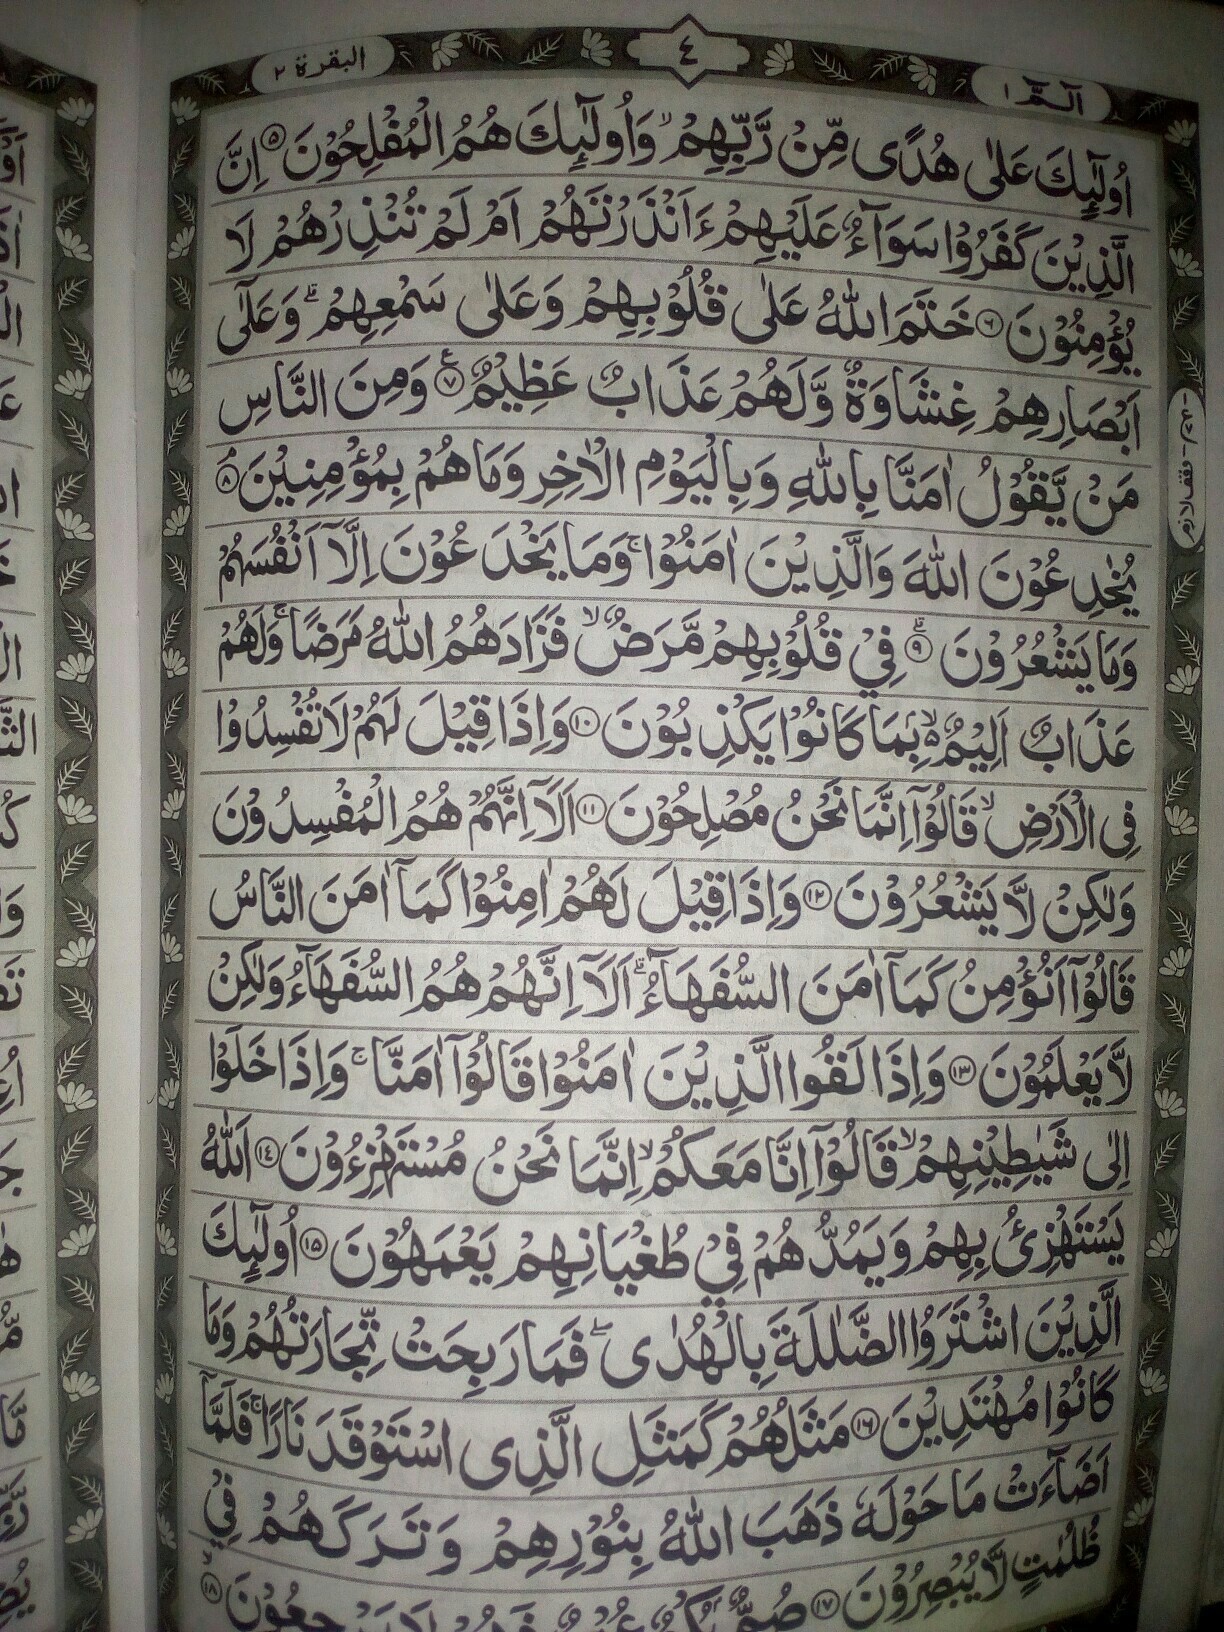 الٓـمّٓ ١
٤
البقرة ٢
اُولٰٓئِكَ عَلٰى هُدًى مِّنْ رَّبِّهِمْ ۙ وَاُولٰٓئِكَ هُمُ الْمُفْلِحُوْنَ ۝٥ اِنَّ
الَّذِيْنَ كَفَرُوْا سَوَآءٌ عَلَيْهِمْ ءَاَنْذَرْتَهُمْ اَمْ لَمْ تُنْذِرْهُمْ لَا
يُؤْمِنُوْنَ ۝٦ خَتَمَ اللّٰهُ عَلٰى قُلُوْبِهِمْ وَعَلٰى سَمْعِهِمْ ۗ وَعَلٰٓى
اَبْصَارِهِمْ غِشَاوَةٌ وَّلَهُمْ عَذَابٌ عَظِيْمٌ ۝٧ ع وَمِنَ النَّاسِ
مَنْ يَّقُوْلُ اٰمَنَّا بِاللّٰهِ وَبِالْيَوْمِ الْاٰخِرِ وَمَا هُمْ بِمُؤْمِنِيْنَ ۝٨ۘ
يُخٰدِعُوْنَ اللّٰهَ وَالَّذِيْنَ اٰمَنُوْا ۚ وَمَا يَخْدَعُوْنَ اِلَّآ اَنْفُسَهُمْ
وَمَا يَشْعُرُوْنَ ۝٩ۗ فِيْ قُلُوْبِهِمْ مَّرَضٌ ۙ فَزَادَهُمُ اللّٰهُ مَرَضًا ۚ وَلَهُمْ
عَذَابٌ اَلِيْمٌۢ ۙ بِمَا كَانُوْا يَكْذِبُوْنَ ۝١٠ وَاِذَا قِيْلَ لَهُمْ لَا تُفْسِدُوْا
فِى الْاَرْضِ ۙ قَالُوْٓا اِنَّمَا نَحْنُ مُصْلِحُوْنَ ۝١١ اَلَآ اِنَّهُمْ هُمُ الْمُفْسِدُوْنَ
وَلٰكِنْ لَّا يَشْعُرُوْنَ ۝١٢ وَاِذَا قِيْلَ لَهُمْ اٰمِنُوْا كَمَآ اٰمَنَ النَّاسُ
قَالُوْٓا اَنُؤْمِنُ كَمَآ اٰمَنَ السُّفَهَآءُ ۗ اَلَآ اِنَّهُمْ هُمُ السُّفَهَآءُ وَلٰكِنْ
لَّا يَعْلَمُوْنَ ۝١٣ وَاِذَا لَقُوا الَّذِيْنَ اٰمَنُوْا قَالُوْٓا اٰمَنَّا ۚ وَاِذَا خَلَوْا
اِلٰى شَيٰطِيْنِهِمْ ۙ قَالُوْٓا اِنَّا مَعَكُمْ ۙ اِنَّمَا نَحْنُ مُسْتَهْزِءُوْنَ ۝١٤ اَللّٰهُ
يَسْتَهْزِئُ بِهِمْ وَيَمُدُّهُمْ فِيْ طُغْيَانِهِمْ يَعْمَهُوْنَ ۝١٥ اُولٰٓئِكَ
الَّذِيْنَ اشْتَرَوُا الضَّلٰلَةَ بِالْهُدٰى ۖ فَمَا رَبِحَتْ تِّجَارَتُهُمْ وَمَا
كَانُوْا مُهْتَدِيْنَ ۝١٦ مَثَلُهُمْ كَمَثَلِ الَّذِى اسْتَوْقَدَ نَارًا ۚ فَلَمَّآ
اَضَآءَتْ مَا حَوْلَهٗ ذَهَبَ اللّٰهُ بِنُوْرِهِمْ وَتَرَكَهُمْ فِيْ
ظُلُمٰتٍ لَّا يُبْصِرُوْنَ ۝١٧ صُمٌّۢ بُكْمٌ عُمْيٌ فَهُمْ لَا يَرْجِعُوْنَ ۝١٨ۙ